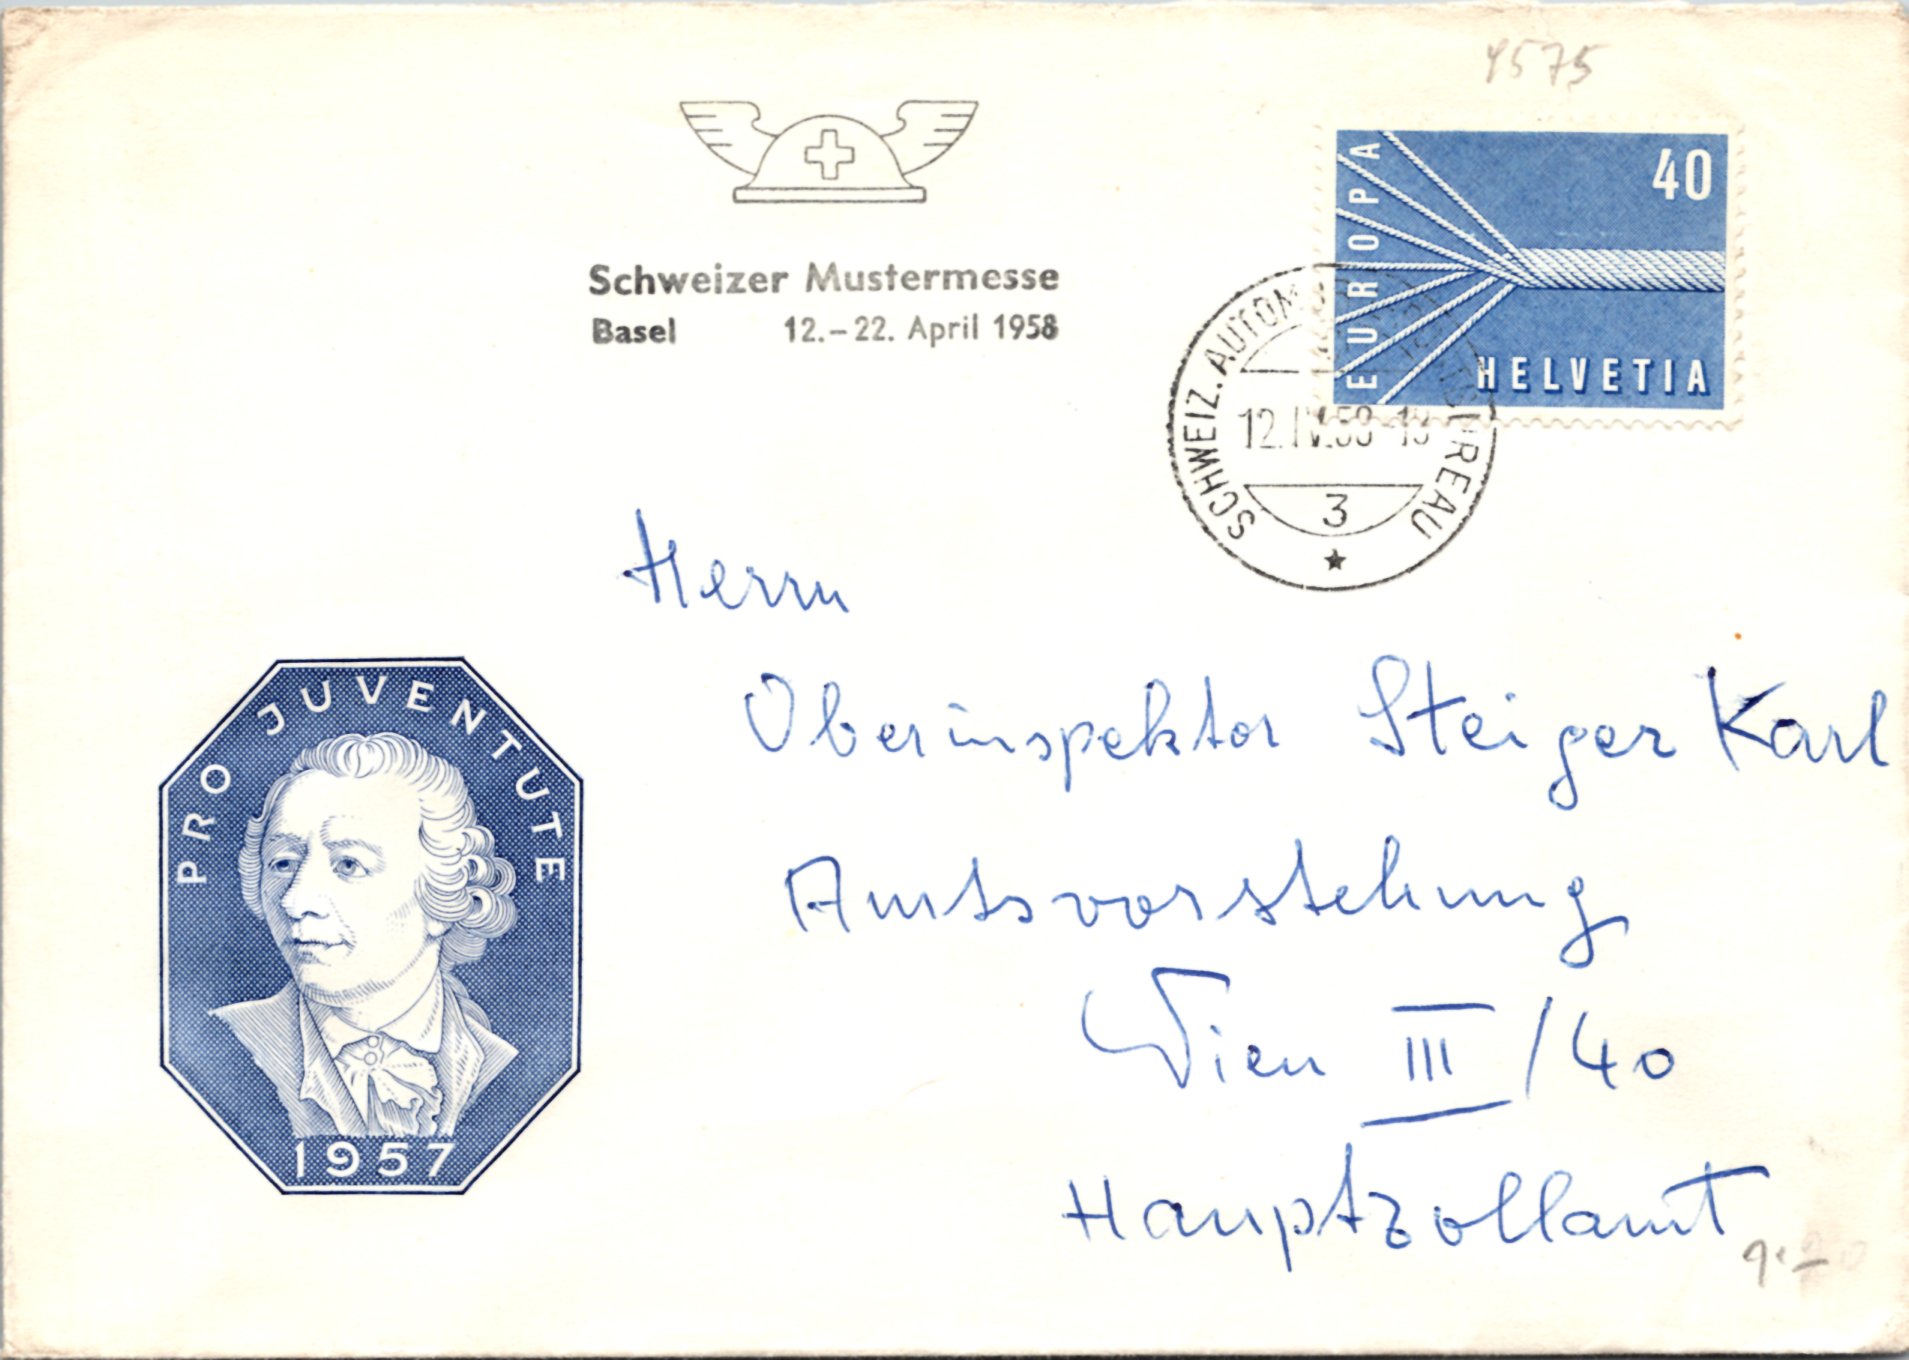 4575
Schweizer Mustermesse
Basel 12.–22. April 1958
EUROPA
40
HELVETIA
SCHWEIZ. AUTOM BUREAU
12.IV.58-18
3
Herrn
Oberinspektor Steiger Karl
Amtsvorstehung
Wien III/40
Hauptzollamt
PRO JUVENTUTE
1957